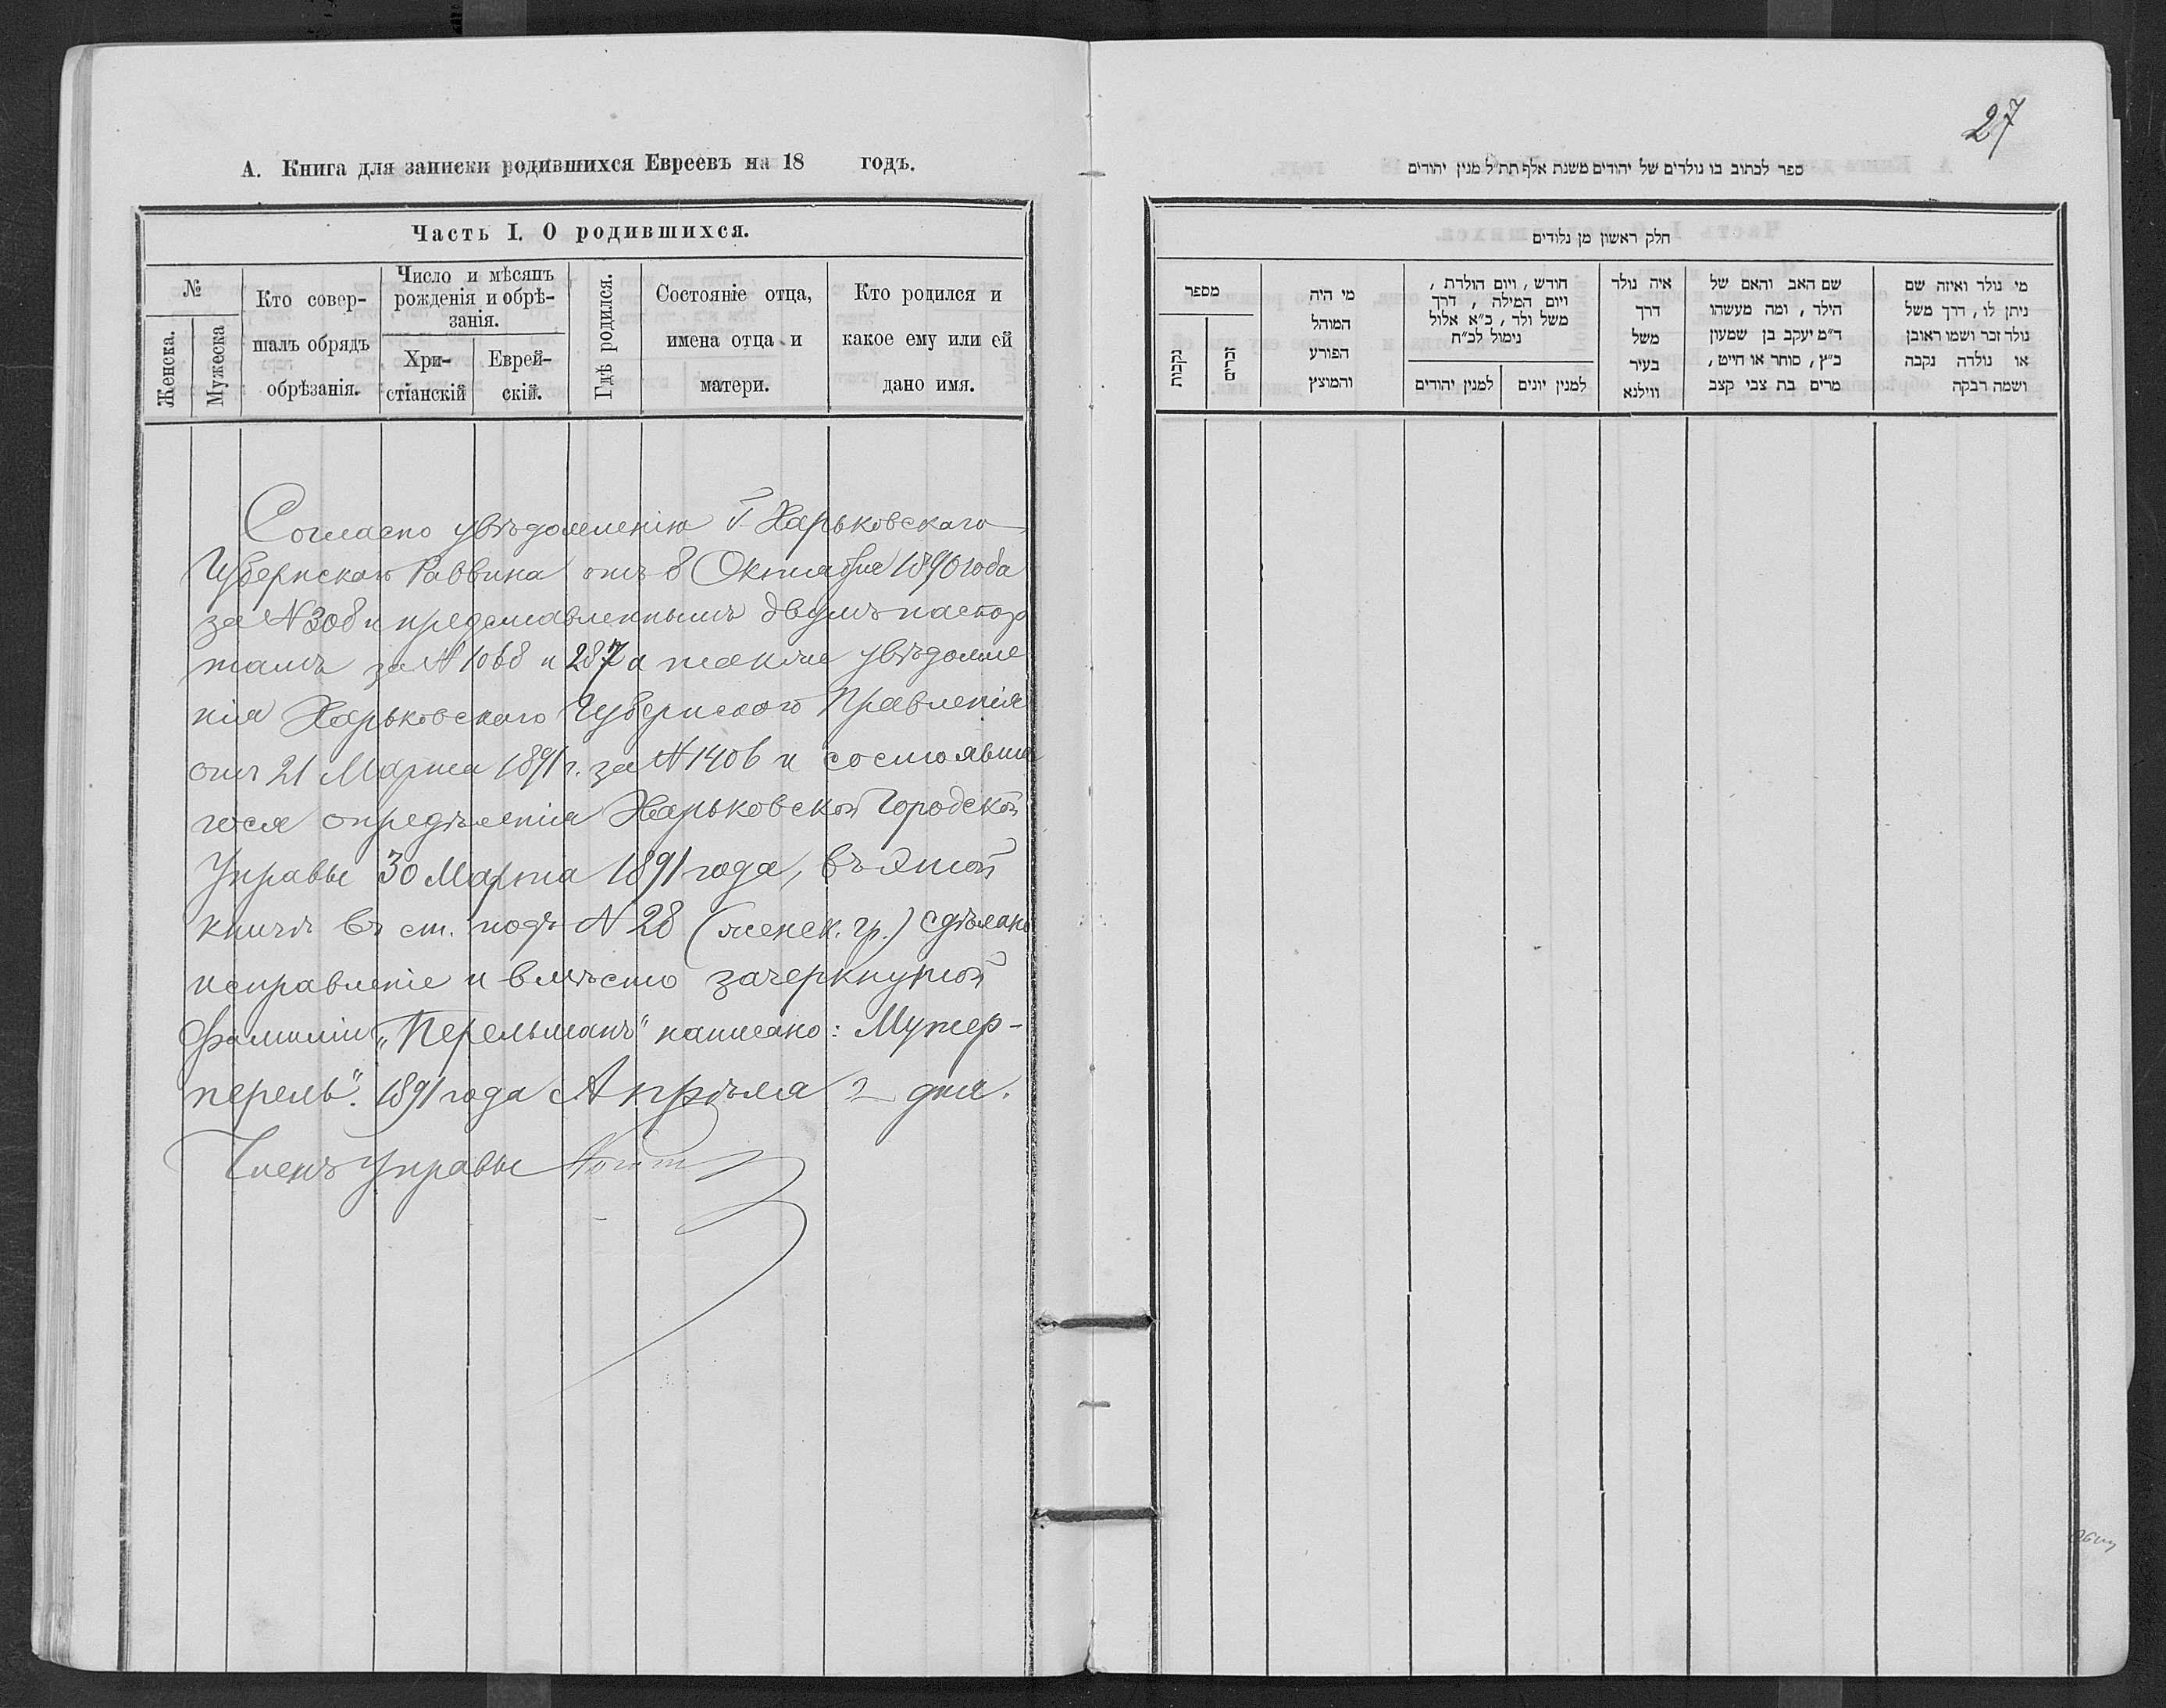 А. Книга для записки родившихся Евреевъ на 18 годъ.
Часть I. О родившихся.
№
Женска.
Мужеска
Кто совер-
шалъ обрядъ
обрѣзанія.
Число и мѣсяцъ
рожденія и обрѣ-
занія.
Хри-
стіанскій
Еврей-
скій.
Гдѣ родился.
Состояніе отца,
имена отца и
матери.
Кто родился и
какое ему или ей
дано имя.
Согласно увѣдомленію Г. Харьковскаго
Губернскаго Раввина отъ 8 Октября 1890 года
за № 308 и представленнымъ двумъ паспор
тамъ за № 1068 и 287 а также увѣдомле
нія Харьковскаго Губернскаго Правленія
отъ 21 Марта 1891 г. за № 1406 и состоявша
гося опредѣленія Харьковской Городской
Управы 30 Марта 1891 года, въ этой
книгѣ въ ст. подъ № 28 (женск. гр.) сдѣлано
исправленіе и вмѣсто зачеркнутой
фамиліи „Перельманъ" написано: Мутер-
перель". 1891 года Апрѣля 2 дня.
Членъ Управы
27
ספר לכתוב בו נולדים של יהודים משנת אלף תת״ל מנין יהודים
חלק ראשון מן נלודים
מי נולד ואיזה שם
ניתן לו, דרך משל
נולד זכר ושמו ראובן
או נולדה נקבה
ושמה רבקה
שם האב והאם של
הילד, ומה מעשהו
ד״מ יעקב בן שמעון
כ״ץ, סוחר או חייט,
מרים בת צבי קצב
איה נולד
דרך
משל
בעיר
ווילנא
חודש, ויום הולדת,
ויום המילה, דרך
משל ולד, כ״א אלול
נימול לכ״ח
למנין יונים
למנין יהודים
מי היה
המוהל
הפורע
והמוצץ
מספר
זכרים
נקבות